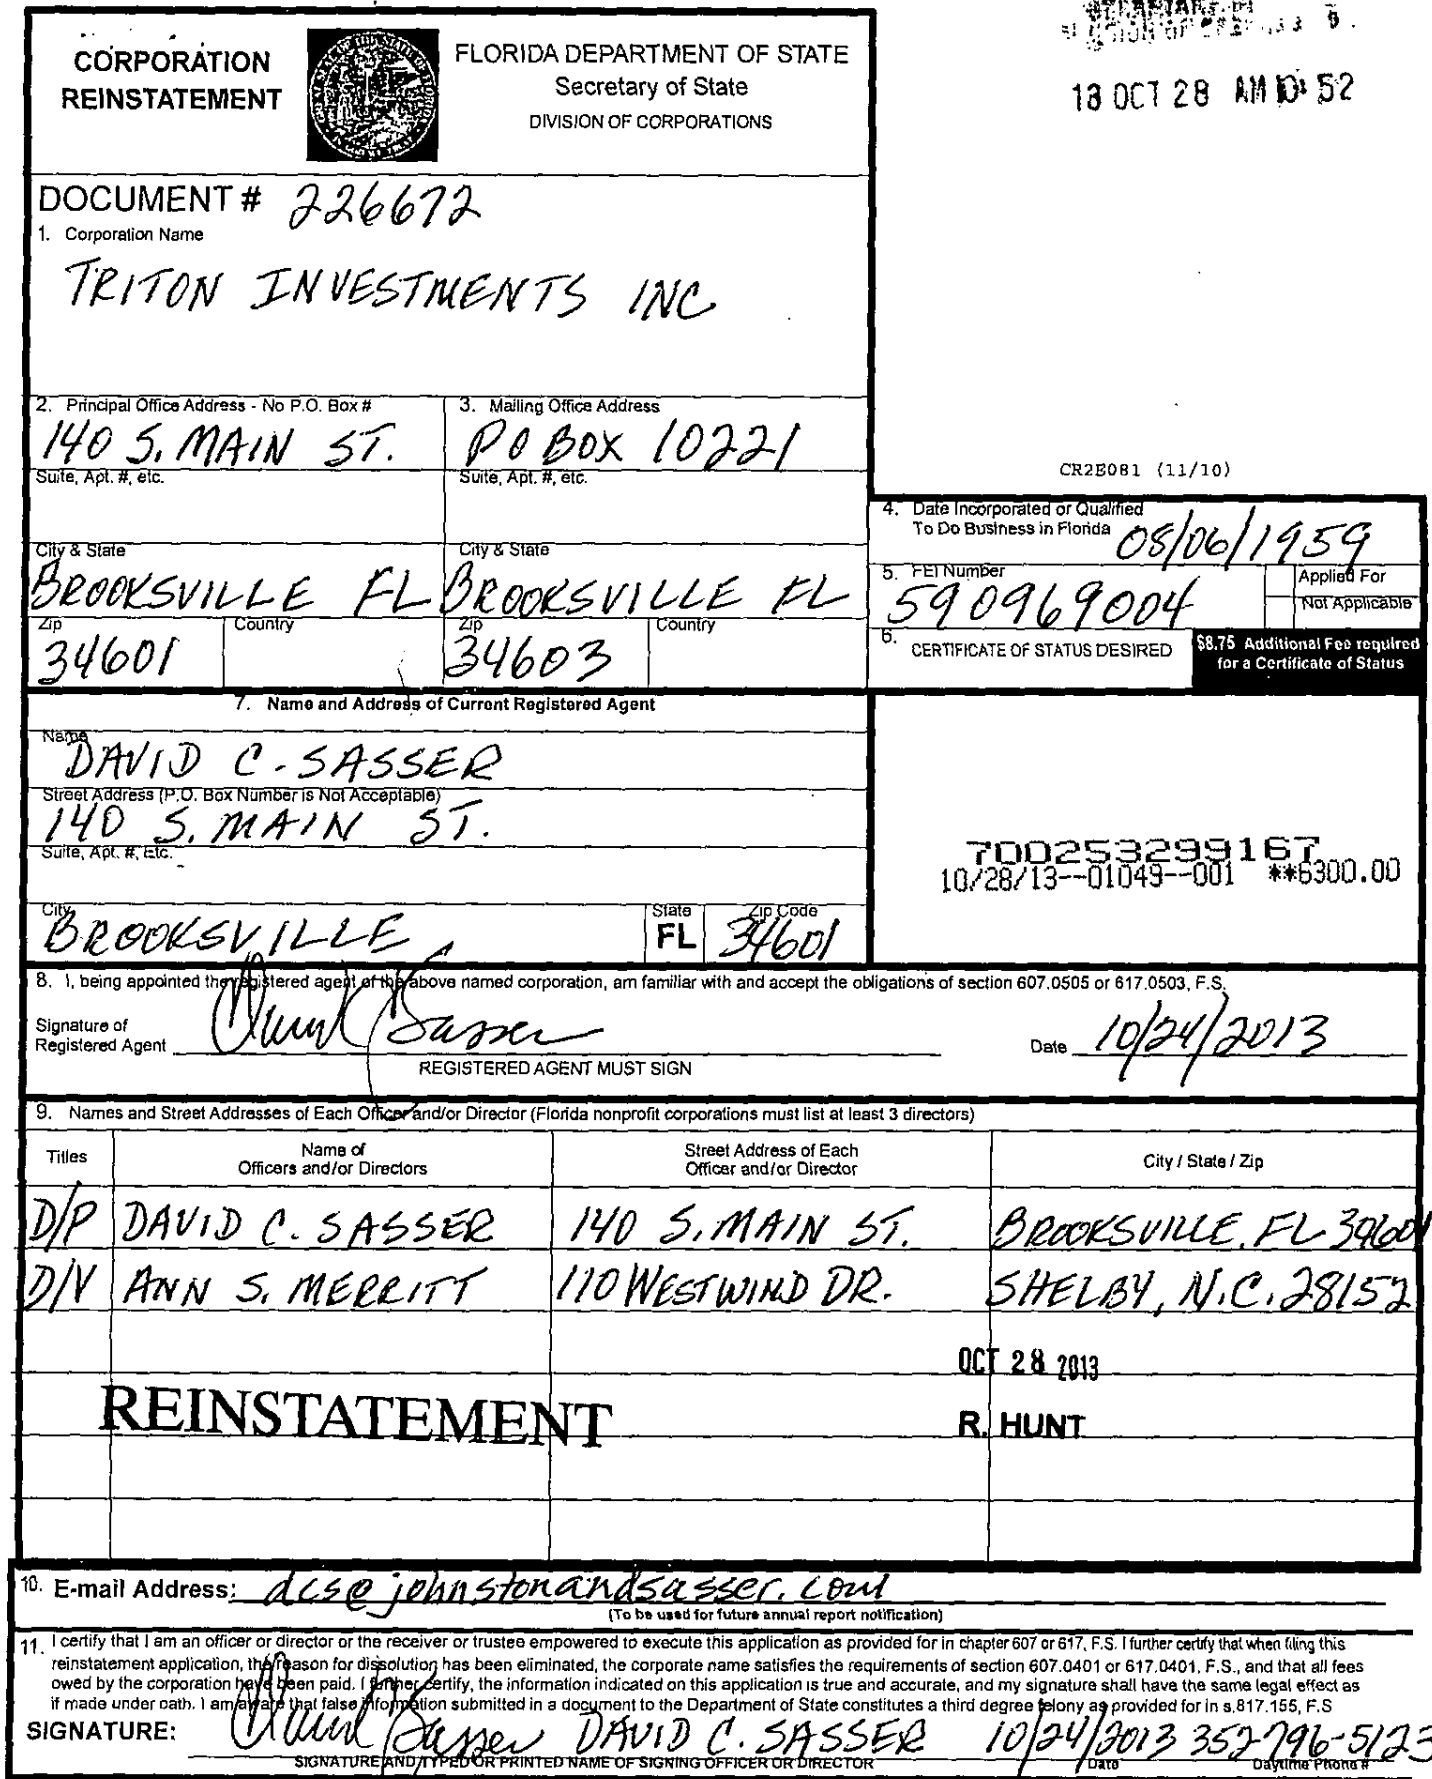 CORPORATION
REINSTATEMENT
FLORIDA DEPARTMENT OF STATE
Secretary of State
DIVISION OF CORPORATIONS
13 OCT 28 AM 10:52
DOCUMENT # 226672
1. Corporation Name
TRITON INVESTMENTS INC
2. Principal Office Address - No P.O. Box #
3. Mailing Office Address
140 S. MAIN ST.
PO BOX 10221
Suite, Apt. #, etc.
Suite, Apt. #, etc.
CR2E081 (11/10)
City & State
City & State
BROOKSVILLE FL
BROOKSVILLE FL
Zip
Country
Zip
Country
34601
34603
4. Date Incorporated or Qualified
To Do Business in Florida 08/06/1959
5. FEI Number
590969004
Applied For
Not Applicable
6.
CERTIFICATE OF STATUS DESIRED
$8.75 Additional Fee required
for a Certificate of Status
7. Name and Address of Current Registered Agent
Name
DAVID C. SASSER
Street Address (P.O. Box Number is Not Acceptable)
140 S. MAIN ST.
Suite, Apt. #, Etc.
City
State
Zip Code
BROOKSVILLE
FL
34601
700253299167
10/28/13--01049--001 **6300.00
8. I, being appointed the registered agent of the above named corporation, am familiar with and accept the obligations of section 607.0505 or 617.0503, F.S.
Signature of
Registered Agent
Date 10/24/2013
REGISTERED AGENT MUST SIGN
9. Names and Street Addresses of Each Officer and/or Director (Florida nonprofit corporations must list at least 3 directors)
Titles
Name of
Officers and/or Directors
Street Address of Each
Officer and/or Director
City / State / Zip
D/P DAVID C. SASSER 140 S. MAIN ST. BROOKSVILLE, FL 34601
D/V ANN S. MERRITT 110 WESTWIND DR. SHELBY, N.C. 28152
OCT 28 2013
REINSTATEMENT
R. HUNT
10. E-mail Address: dcs@johnstonandsasser.com
(To be used for future annual report notification)
11. I certify that I am an officer or director or the receiver or trustee empowered to execute this application as provided for in chapter 607 or 617, F.S. I further certify that when filing this
reinstatement application, the reason for dissolution has been eliminated, the corporate name satisfies the requirements of section 607.0401 or 617.0401, F.S., and that all fees
owed by the corporation have been paid. I further certify, the information indicated on this application is true and accurate, and my signature shall have the same legal effect as
if made under oath. I am aware that false information submitted in a document to the Department of State constitutes a third degree felony as provided for in s.817.155, F.S
SIGNATURE: David C Sasser DAVID C. SASSER 10/24/2013 352-796-5123
SIGNATURE AND TYPED OR PRINTED NAME OF SIGNING OFFICER OR DIRECTOR
Date
Daytime Phone #